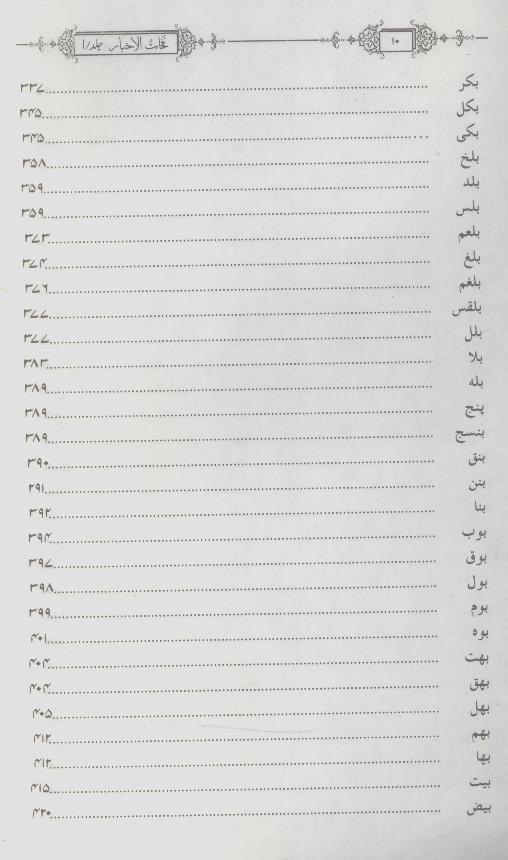 ۱۰ نفحات الاخبار جلد/۱
بکر ۳۳۷
بکل ۳۴۵
بکی ۳۴۵
بلخ ۳۵۸
بلد ۳۵۹
بلس ۳۵۹
بلعم ۳۷۳
بلغ ۳۷۴
بلغم ۳۷۶
بلقس ۳۷۷
بلل ۳۷۷
بلا ۳۸۳
بله ۳۸۹
پنج ۳۸۹
بنسج ۳۸۹
بنق ۳۹۰
بنن ۲۹۱
بنا ۳۹۲
بوب ۳۹۴
بوق ۳۹۷
بول ۳۹۸
بوم ۳۹۹
بوه ۴۰۱
بهت ۴۰۴
بهق ۴۰۴
بهل ۴۰۵
بهم ۴۱۲
بها ۴۱۲
بیت ۴۱۵
بیض ۴۲۰